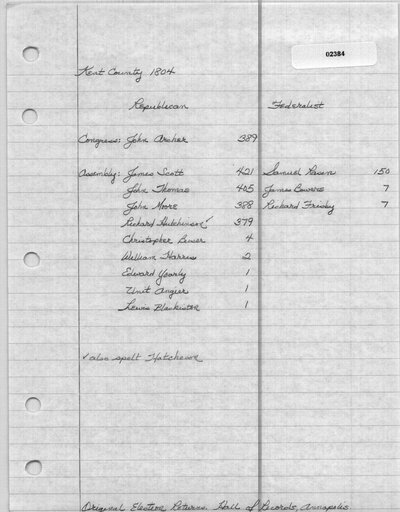 02384
Kent County 1804
Republican Federalist
Congress: John Archer 389
Assembly: James Scott 421 Samuel 150
John Thomas 405 James Bowers 7
John Moore 388 Richard Frisby 7
Richard Hutchinson✓ 379
Christopher 4
William Harris 2
Edward Yearly 1
Unit Angier 1
Lewis Blackiston 1
✓ also spelt Hutcheson
Original Election Returns, Hall of Records, Annapolis.